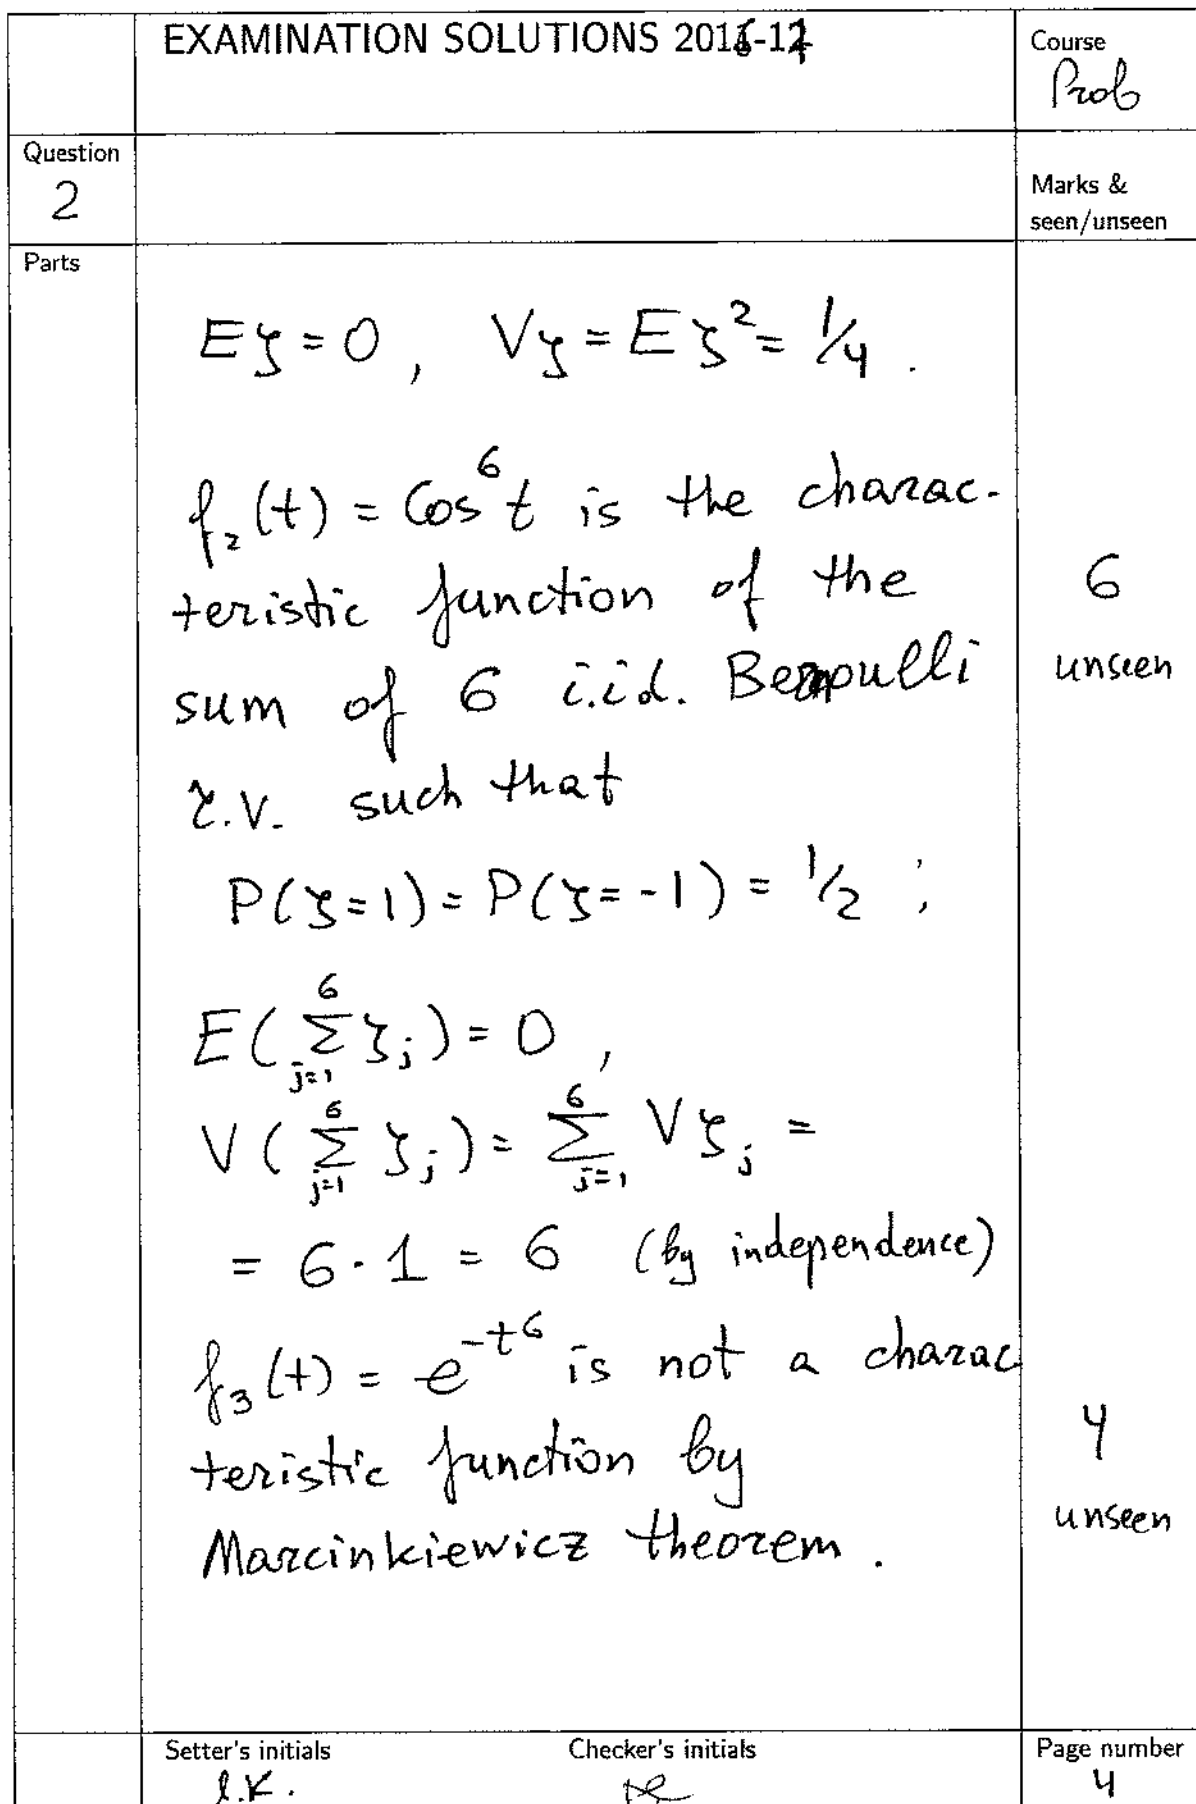 EXAMINATION SOLUTIONS 2016-17
Course
Prob
Question
2
Marks &
seen/unseen
Parts
Eξ = 0, Vξ = Eξ² = 1/4.
f₂(t) = Cos⁶t is the charac-
teristic function of the
6
sum of 6 i.i.d. Bernoulli
unseen
r.v. such that
P(ξ=1) = P(ξ=-1) = 1/2 ;
E(∑_{j=1}^{6} ξ_j) = 0 ,
V(∑_{j=1}^{6} ξ_j) = ∑_{j=1}^{6} Vξ_j =
= 6·1 = 6 (by independence)
f₃(t) = e^{-t⁶} is not a charac
4
teristic function by
unseen
Marcinkiewicz theorem.
Setter's initials
Checker's initials
Page number
l.K.
4